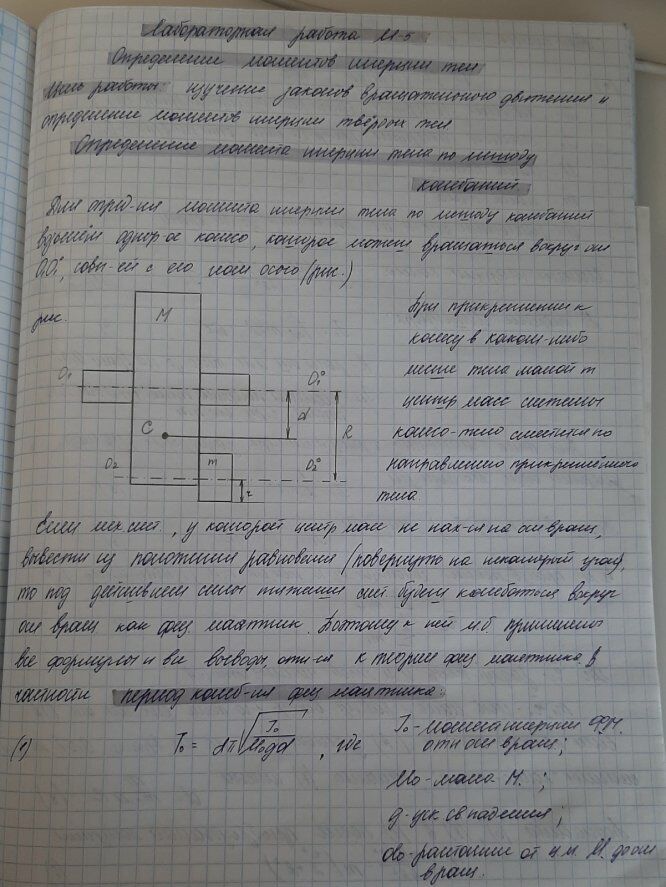 Лабораторная работа М-5
Определение моментов инерции тел
Цель работы: изучение законов вращательного движения и
определение моментов инерции твёрдых тел
Определение момента инерции тела по методу
колебаний
Для опред-ия момента инерции тела по методу колебаний
возьмём однор-ое колесо, которое может вращаться вокруг оси
O₁O₁°, совп-ей с его геом осью (рис.)
рис.
M
O₁
O₁°
d
R
C
m
O₂
O₂°
r
При прикреплении к
колесу в каком-либо
месте тела массой m
центр масс системы
колесо-тело сместится по
направлению прикреплённого
тела
Если мех.сист., у которой центр масс не нах-ся на оси вращ,
вывести из положения равновесия (повернуть на некоторый угол),
то под действием силы тяжести сист. будет колебаться вокруг
оси вращ как физ. маятник. Поэтому к ней м.б. применены
все формулы и все выводы, отн-ся к теории физ маятника. В
частности период колеб-ия физ маятника:
(1) T₀ = 2π√(I₀/M₀gd), где
I₀ - момент инерции ф.м.
отн оси вращ;
M₀ - масса М.;
g - уск св падения;
d₀ - расстояние от ц.м. М. до оси
вращ.